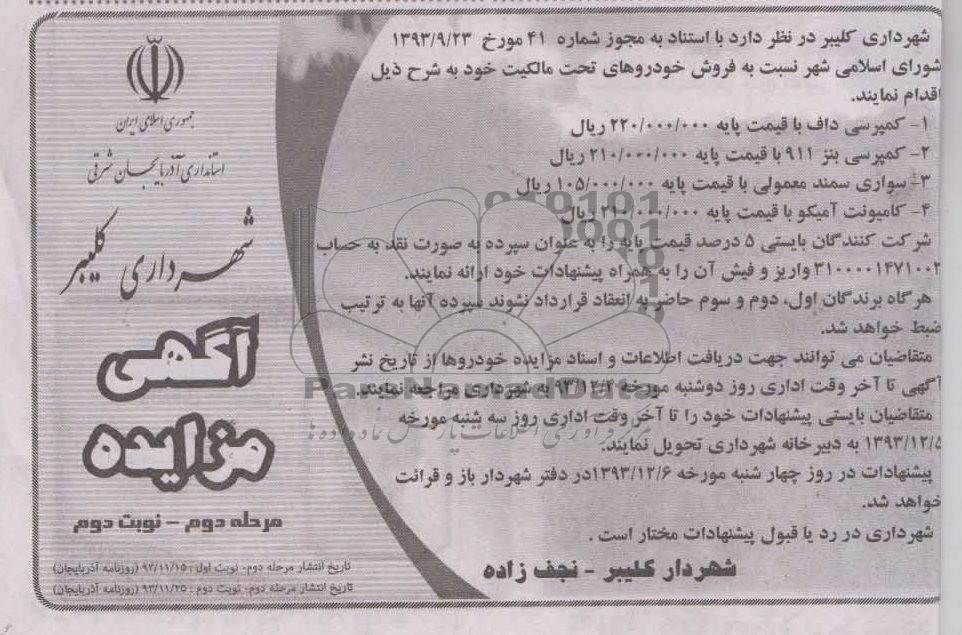 شهرداری کلیبر در نظر دارد با استناد به مجوز شماره ۴۱ مورخ ۱۳۹۳/۹/۲۳
شورای اسلامی شهر نسبت به فروش خودروهای تحت مالکیت خود به شرح ذیل
اقدام نمایند.
۱- کمپرسی داف با قیمت پایه ۲۲۰/۰۰۰/۰۰۰ ریال
۲- کمپرسی بنز ۹۱۱ با قیمت پایه ۲۱۰/۰۰۰/۰۰۰ ریال
۳- سواری سمند معمولی با قیمت پایه ۱۰۵/۰۰۰/۰۰۰ ریال
۴- کامیونت آمیکو با قیمت پایه ۲۱۰/۰۰۰/۰۰۰ ریال
شرکت کنندگان بایستی ۵ درصد قیمت پایه را به عنوان سپرده به صورت نقد به حساب
واریز و فیش آن را به همراه پیشنهادات خود ارائه نمایند.
هرگاه برندگان اول، دوم و سوم حاضر به انعقاد قرارداد نشوند سپرده آنها به ترتیب
ضبط خواهد شد.
متقاضیان می توانند جهت دریافت اطلاعات و اسناد مزایده خودروها از تاریخ نشر
آگهی تا آخر وقت اداری روز دوشنبه مورخه ۹۳/۱۲/۴ به شهرداری مراجعه نمایند.
متقاضیان بایستی پیشنهادات خود را تا آخر وقت اداری روز سه شنبه مورخه
۱۳۹۳/۱۲/۵ به دبیرخانه شهرداری تحویل نمایند.
پیشنهادات در روز چهار شنبه مورخه ۱۳۹۳/۱۲/۶در دفتر شهردار باز و قرائت
خواهد شد.
شهرداری در رد یا قبول پیشنهادات مختار است .
شهردار کلیبر - نجف زاده
جمهوری اسلامی ایران
استانداری آذربایجان شرقی
شهرداری کلیبر
آگهی
مزایده
مرحله دوم - نوبت دوم
تاریخ انتشار مرحله دوم- نوبت اول : ۹۳/۱۱/۱۵ (روزنامه آذربایجان)
تاریخ انتشار مرحله دوم- نوبت دوم : ۹۳/۱۱/۲۵ (روزنامه آذربایجان)